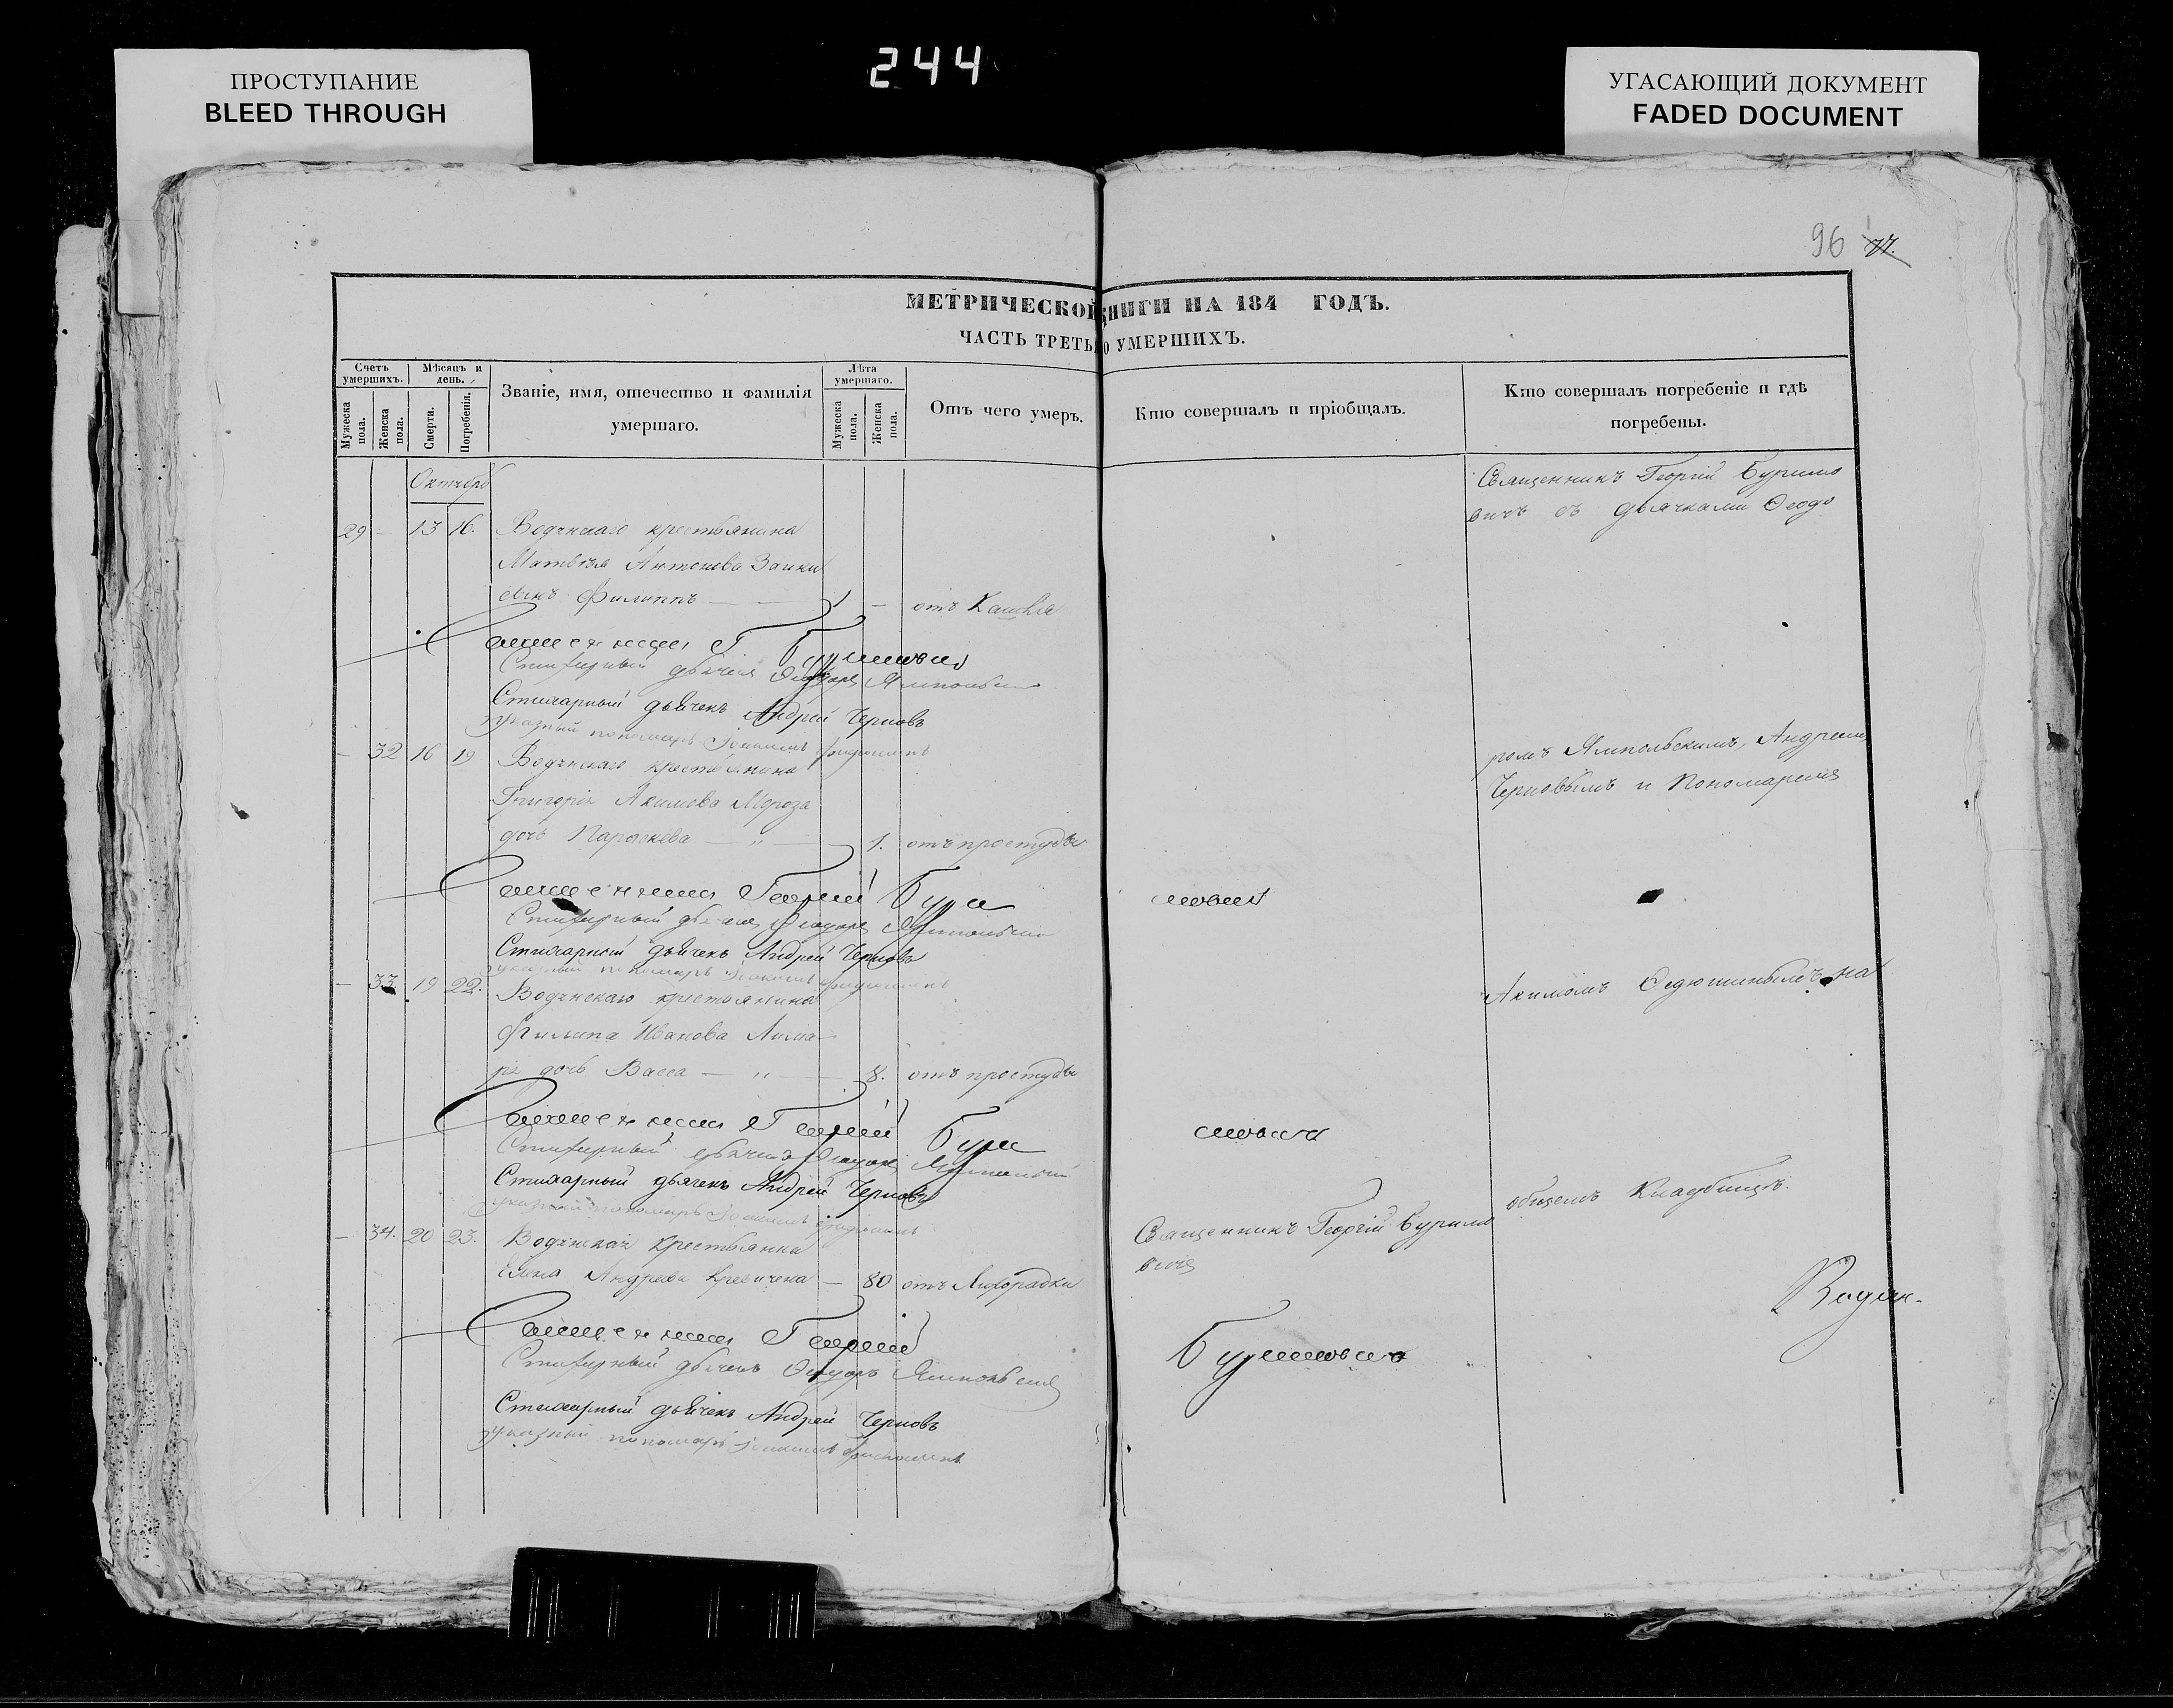 ПРОСТУПАНИЕ
BLEED THROUGH
244
УГАСАЮЩИЙ ДОКУМЕНТ
FADED DOCUMENT
96 77.
МЕТРИЧЕСКОЙ КНИГИ НА 184 ГОДЪ.
ЧАСТЬ ТРЕТЬЯ О УМЕРШИХЪ.
Счетъ умершихъ.
Мужеска пола.
Женска пола.
Мѣсяцъ и день.
Смерти.
Погребенія.
Званіе, имя, отечество и фамилія умершаго.
Лѣта умершаго.
Мужеска пола.
Женска пола.
Отъ чего умеръ.
Кто совершалъ и пріобщалъ.
Кто совершалъ погребеніе и гдѣ погребены.
Октябрь
29 - 13 16. Водянскаго крестьянина
Матвѣя Антонова Заики
сынъ Филиппъ — 1 - отъ Кашля
Священникъ Г Буриловичъ
Стихарный дьячекъ Ѳеодоръ Ямпольскій
Стихарный дьячекъ Андрей Черновъ
Указный пономарь Іоакимъ
- 32 16 19 Водянскаго крестьянина
Григорія Акимова Мороза
дочь Параскева — " — 1. отъ простуды
Священникъ Георгій Буриловичъ
Стихарный дьячекъ Ѳеодоръ Ямпольскій
Стихарный дьячекъ Андрей Черновъ
Указный пономарь Іоакимъ
- 33 19 22. Водянскаго крестьянина
Филипа Иванова Лима
ря дочь Васса — " — 8. отъ простуды
Священникъ Георгій Буриловичъ
Стихарный дьячекъ Ѳеодоръ Ямпольскій
Стихарный дьячекъ Андрей Черновъ
Указный пономарь Іоакимъ
- 34. 20 23. Водянская крестьянка
Андреева — 80 отъ Лихорадки
Священникъ Георгій Бурило
вичъ
Священникъ Георгій Буриловичъ
Стихарный дьячекъ Ѳеодоръ Ямпольскій
Стихарный дьячекъ Андрей Черновъ
Указный пономарь Іоакимъ
Священникъ Георгій Бурило
вичъ съ дьячками Ѳеодо
ромъ Ямпольскимъ, Андреемъ
Черновымъ и Пономаремъ
Акимомъ Ѳедюшинымъ на
общемъ Кладбищѣ.
Водян-